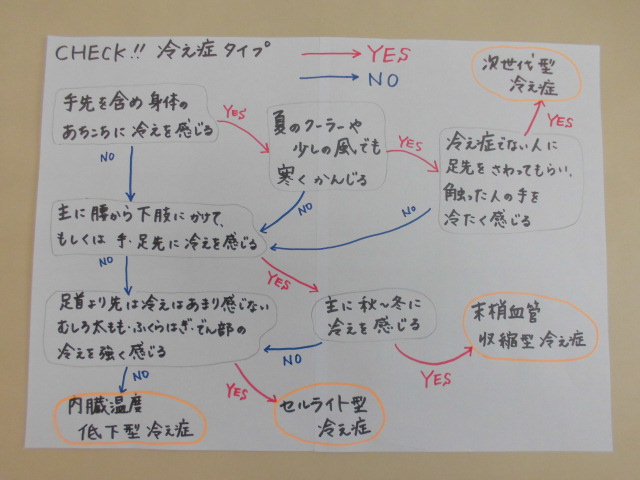 CHECK!! 冷え症タイプ
YES
NO
次世代型
冷え症
手先を含め身体の
あちこちに冷えを感じる
YES
夏のクーラーや
少しの風でも
寒くかんじる
YES
冷え症でない人に
足先をさわってもらい、
触った人の手を
冷たく感じる
YES
NO
NO
NO
主に腰から下肢にかけて、
もしくは手・足先に冷えを感じる
NO
YES
足首より先は冷えはあまり感じない
むしろ太もも・ふくらはぎ・でん部の
冷えを強く感じる
主に秋〜冬に
冷えを感じる
末梢血管
収縮型冷え症
NO
YES
NO
YES
内臓温度
低下型冷え症
セルライト型
冷え症